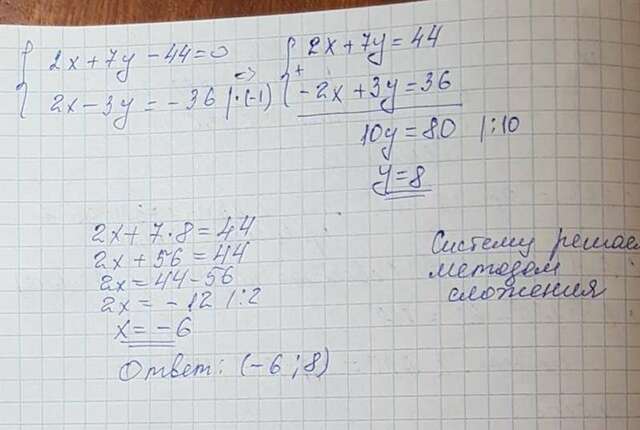 2x + 7y - 44 = 0
2x - 3y = -36 |·(-1)
<=>
2x + 7y = 44
+
-2x + 3y = 36
10y = 80 |:10
y = 8
2x + 7·8 = 44
2x + 56 = 44
2x = 44 - 56
2x = -12 |:2
x = -6
Ответ: (-6 ; 8)
Систему решаем
методом
сложения